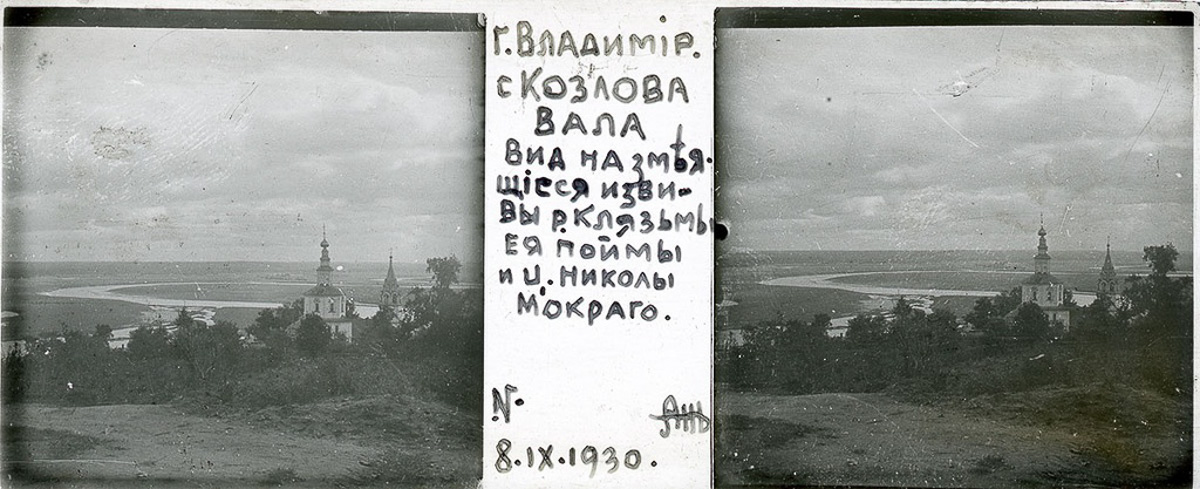 г. Владимір.
с Козлова
Вала
Вид на змѣя-
щіеся изви-
вы р. Клязьмы
ея поймы
и ц. Николы
Мокраго.
N.
8.IX.1930.